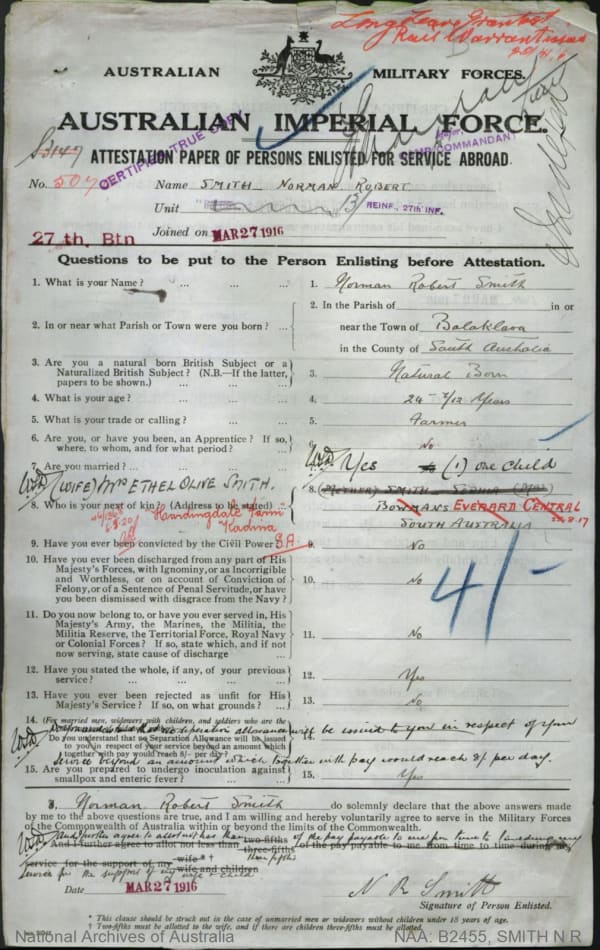 Long Leave Granted
Rail Warrant issued
AUSTRALIAN MILITARY FORCES.
AUSTRALIAN IMPERIAL FORCE.
CERTIFIED TRUE COPY
CAMP COMMANDANT
ATTESTATION PAPER OF PERSONS ENLISTED FOR SERVICE ABROAD.
No. 507 Name SMITH NORMAN ROBERT.
Unit 13/ REINF., 27th INF.
27 th. Btn Joined on MAR 27 1916
Questions to be put to the Person Enlisting before Attestation.
1. What is your Name? ... ... ... 1. Norman Robert Smith
2. In or near what Parish or Town were you born? ... 2. In the Parish of in or
near the Town of Balaklava
in the County of South Australia
3. Are you a natural born British Subject or a
Naturalized British Subject? (N.B.—If the latter,
papers to be shown.) ... ... ... 3. Natural Born
4. What is your age? ... ... ... 4. 24 Years
5. What is your trade or calling? ... ... 5. Farmer
6. Are you, or have you been, an Apprentice? If so,
where, to whom, and for what period? ... No
Are you married? ... ... ... Yes (1) one Child
(WIFE) Mrs ETHEL OLIVE SMITH.
8. Who is your next of kin? (Address to be stated) 8. (MOTHER) SMITH - SOPHIA (Mrs)
BOWMANS EVERARD CENTRAL
SOUTH AUSTRALIA 22.8.17
Farm
Kadina
S.A.
9. Have you ever been convicted by the Civil Power? 9. No
10. Have you ever been discharged from any part of His
Majesty's Forces, with Ignominy, or as Incorrigible
and Worthless, or on account of Conviction of
Felony, or of a Sentence of Penal Servitude, or have
you been dismissed with disgrace from the Navy? 10. No
4/-
11. Do you now belong to, or have you ever served in, His
Majesty's Army, the Marines, the Militia, the
Militia Reserve, the Territorial Force, Royal Navy
or Colonial Forces? If so, state which, and if not
now serving, state cause of discharge 11. No
12. Have you stated the whole, if any, of your previous
service? ... ... ... ... 12. Yes
13. Have you ever been rejected as unfit for His
Majesty's Service? If so, on what grounds? 13. No
14. (For married men, widowers with children, and soldiers who are the
separation allowance will be issued to you in respect of your
Do you understand that no Separation Allowance will be issued
to you in respect of your service beyond an amount which
together with pay would reach 8/- per day?
service beyond an amount which together with pay would reach 8/- per day.
15. Are you prepared to undergo inoculation against
smallpox and enteric fever? ... ... 15. Yes
I, Norman Robert Smith do solemnly declare that the above answers made
by me to the above questions are true, and I am willing and hereby voluntarily agree to serve in the Military Forces
of the Commonwealth of Australia within or beyond the limits of the Commonwealth.
And I further agree to allot not less than two-fifths three-fifths of the pay payable to me from time to time during my
service for the support of my wife* † wife and children
three fifths
service for the support of my wife & child
Date MAR 27 1916 N R Smith
Signature of Person Enlisted.
* This clause should be struck out in the case of unmarried men or widowers without children under 18 years of age.
† Two-fifths must be allotted to the wife, and if there are children three-fifths must be allotted.
National Archives of Australia NAA: B2455, SMITH N R